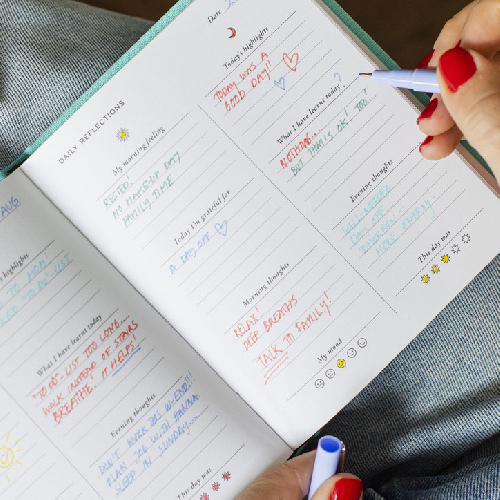 Date
DAILY REFLECTIONS
My morning feeling
RESTED!
FAMILY TIME
Today I'm grateful for
A DAY OFF
Morning thoughts
RELAX!
DEEP BREATHS
TALK TO FAMILY!
My mood
Today's highlights
TODAY WAS A
GOOD DAY!!
What I have learnt today
?
NOTHING...
BUT THAT'S OK! TOO..
Evening thoughts
This day was
AUG
highlights
What I have learnt today
TO DO-LIST TOO LONG...
WALK INSTEAD OF STAIRS
BREATHE. IT HELPS!
Evening thoughts
SLEEP IN SUNDAY...
This day was